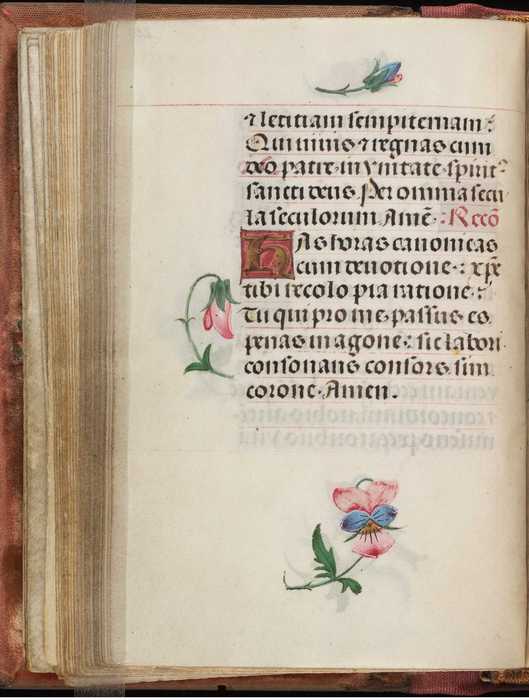 ⁊ letitiam sempiternam :
Qui viuis ⁊ regnas cum
deo patre in vnitate spirit⁹
sancti deus. Per omnia secu
la seculorum Amē. : Recō
HAs horas canonicas
cum deuotione : xp̄e
tibi recolo pia ratione :
Tu qui pro me passus es
penas in agone : sic labori
consonans consors sim
corone. Amen.